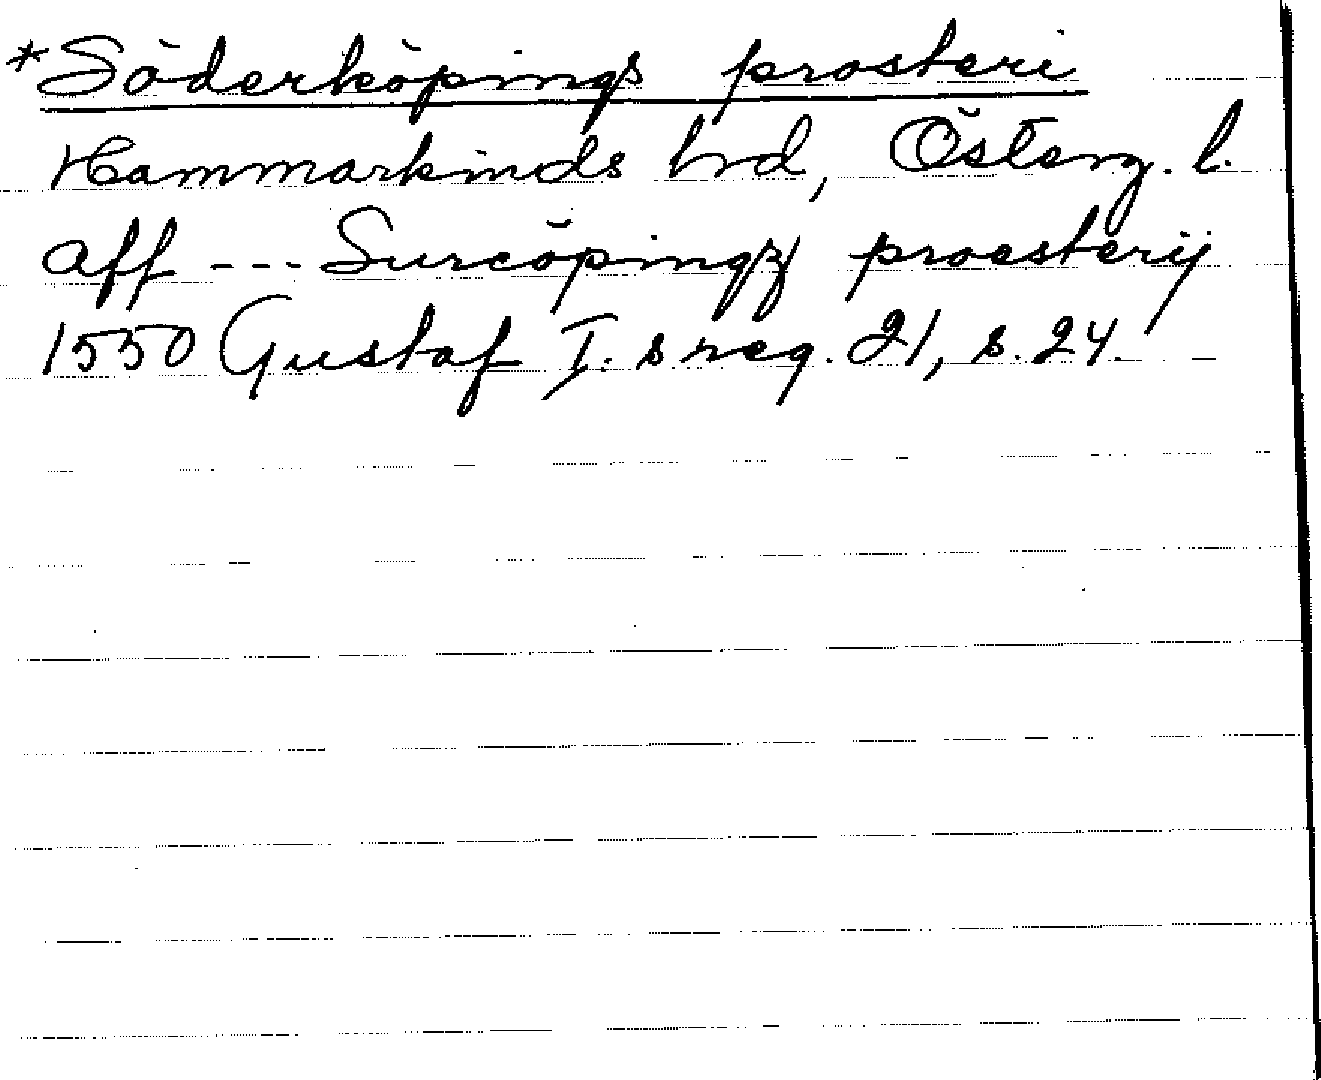 *Söderköpings prosteri
Hammarkinds hrd, Österg. l.
aff --- Surcöpingz prosterij
1550 Gustaf I. s reg. 21, s. 24.